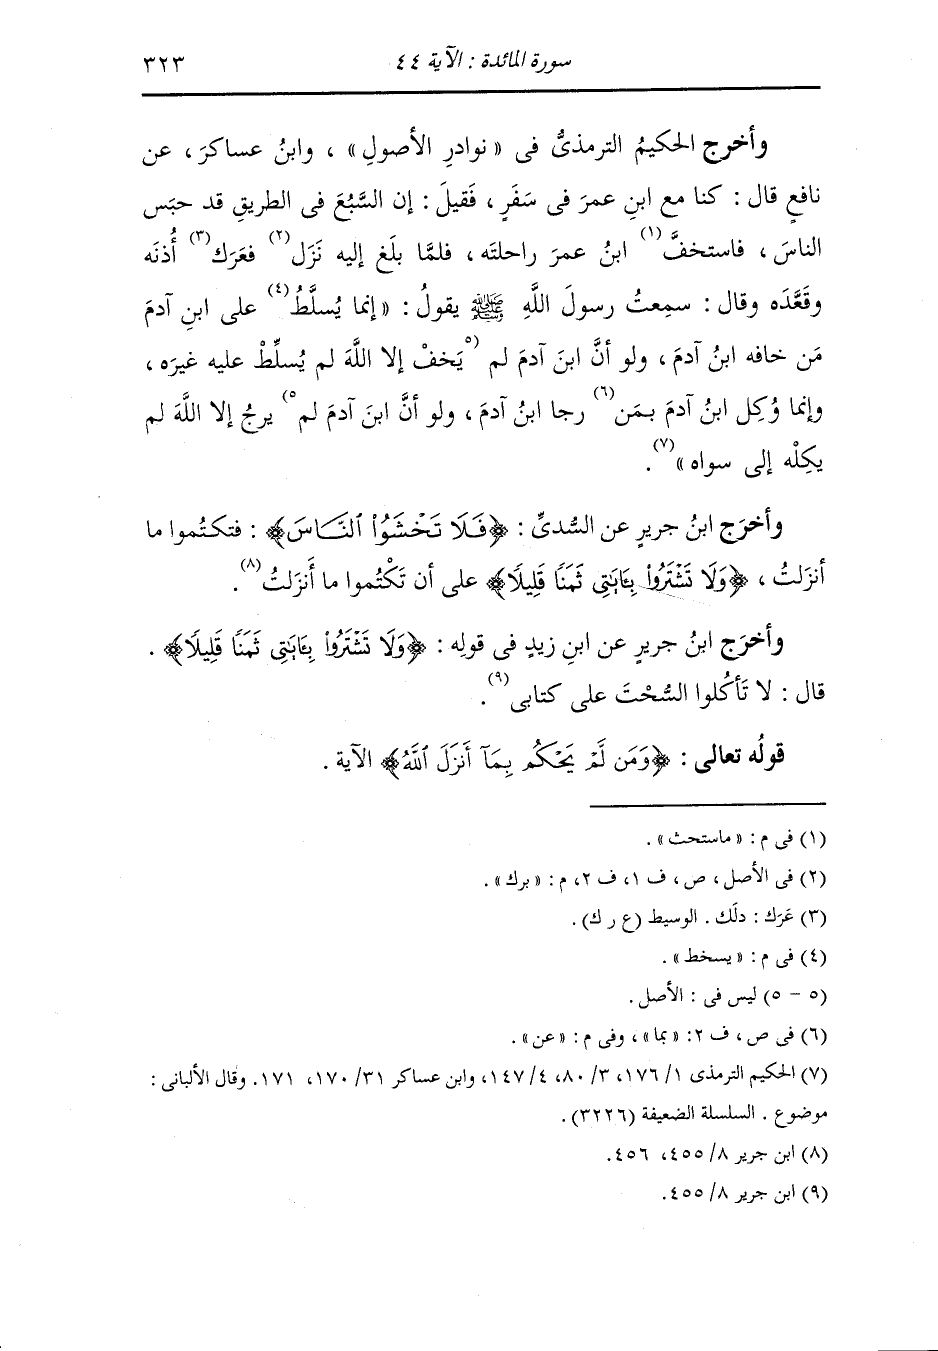 سورة المائدة : الآية ٤٤
٣٢٣
وأخرج الحكيمُ الترمذىُّ فى «نوادرِ الأصولِ» ، وابنُ عساكرَ ، عن
نافعٍ قال : كنا مع ابنِ عمرَ فى سَفَرٍ ، فَقيلَ : إن السَّبُعَ فى الطريقِ قد حبَس
الناسَ ، فاستخفَّ(١) ابنُ عمرَ راحلتَه ، فلمَّا بلَغ إليه نَزَل(٢) فعَرَك(٣) أُذنَه
وقَعَّدَه وقال : سمِعتُ رسولَ اللَّهِ ﷺ يقولُ : «إنما يُسلَّطُ(٤) على ابنِ آدمَ
مَن خافه ابنُ آدمَ ، ولو أنَّ ابنَ آدمَ لم (٥يَخفْ إلا اللَّهَ لم يُسلِّطْ عليه غيرَه ،
وإنما وُكِل ابنُ آدمَ بمَن(٦) رجا ابنُ آدمَ ، ولو أنَّ ابنَ آدمَ لم٥) يرجُ إلا اللَّهَ لم
يكِلْه إلى سواه»(٧).
وأخرَج ابنُ جريرٍ عن السُّدىِّ : ﴿فَلَا تَخْشَوُا۟ ٱلنَّاسَ﴾ : فتكتُموا ما
أنزَلتُ ، ﴿وَلَا تَشْتَرُوا۟ بِـَٔايَـٰتِى ثَمَنًا قَلِيلًا﴾ على أن تَكْتُموا ما أَنزَلتُ(٨).
وأخرَج ابنُ جريرٍ عن ابنِ زيدٍ فى قولِه : ﴿وَلَا تَشْتَرُوا۟ بِـَٔايَـٰتِى ثَمَنًا قَلِيلًا﴾ .
قال : لا تَأكُلوا السُّحْتَ على كتابى(٩).
قولُه تعالى : ﴿وَمَن لَّمْ يَحْكُم بِمَآ أَنزَلَ ٱللَّهُ﴾ الآية .
(١) فى م : «ماستحث» .
(٢) فى الأصل ، ص ، ف ١، ف ٢، م : «برك» .
(٣) عَرَك : دلَك . الوسيط (ع ر ك) .
(٤) فى م : «يسخط» .
(٥ - ٥) ليس فى : الأصل .
(٦) فى ص ، ف ٢: «بما» ، وفى م : «عن» .
(٧) الحكيم الترمذى ١/ ١٧٦، ٣/ ٨٠، ٤/ ١٤٧، وابن عساكر ٣١/ ١٧٠، ١٧١. وقال الألبانى :
موضوع . السلسلة الضعيفة (٣٢٢٦) .
(٨) ابن جرير ٨/ ٤٥٥، ٤٥٦.
(٩) ابن جرير ٨/ ٤٥٥.